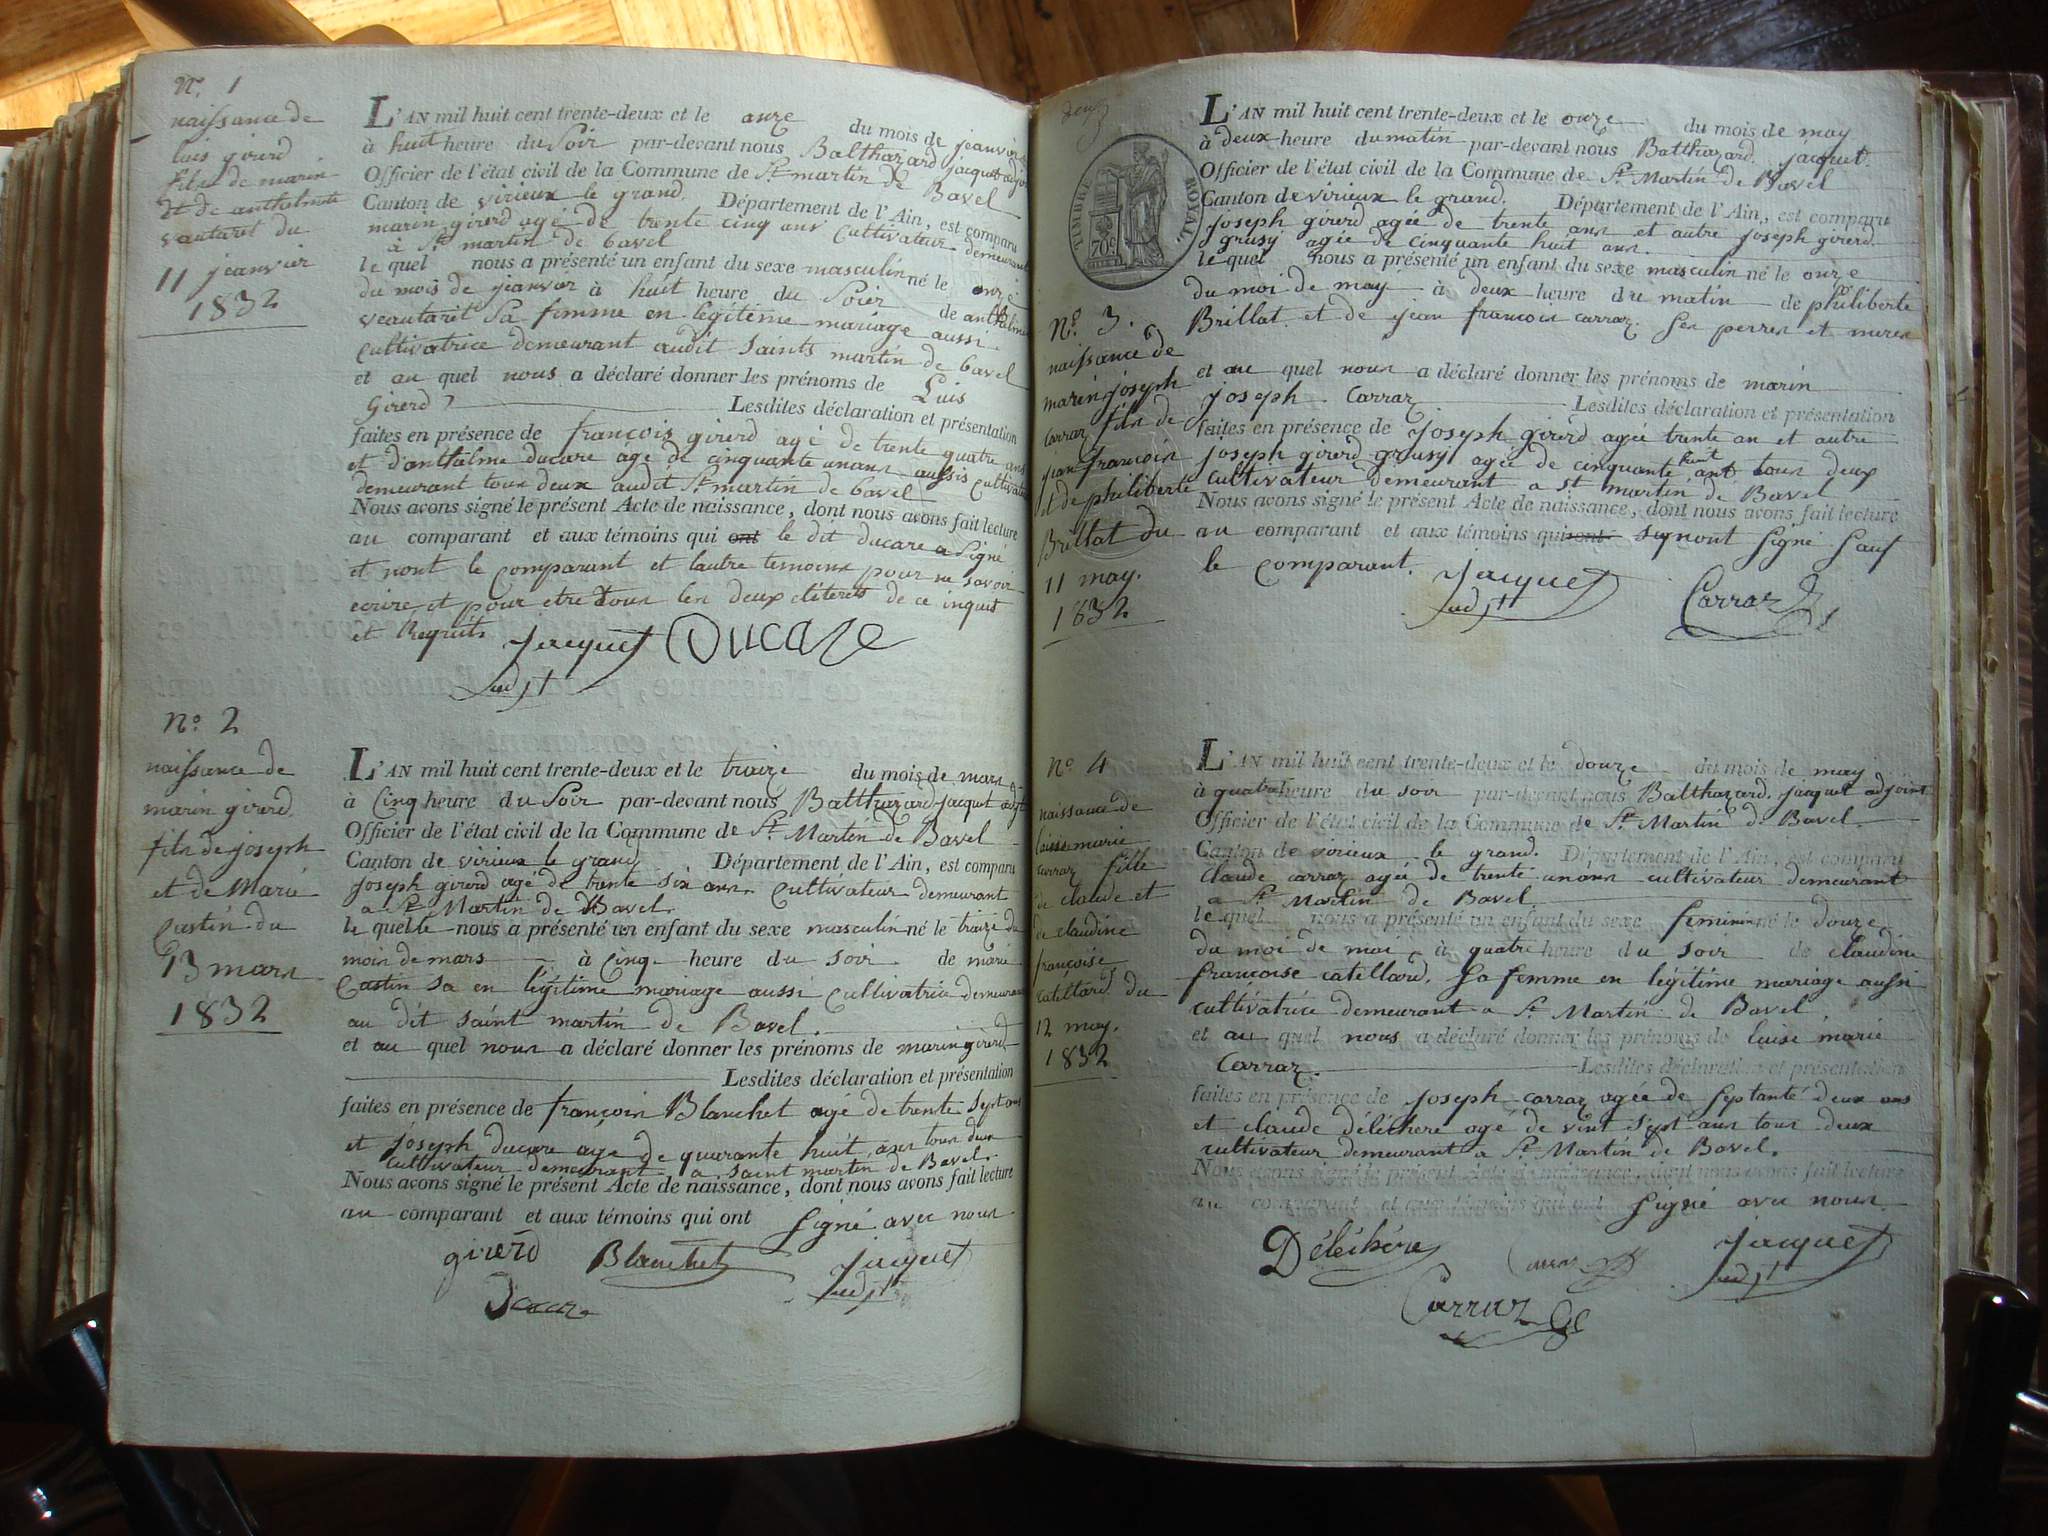 N.° 1
naissance de
luis girerd
fils de marin
et de anthelmete
vautaret du
11 jeanvier
1832
L'AN mil huit cent trente-deux et le onze du mois de jeanvier
à huit heure du Soir par-devant nous Balthazard jacquet adjoint
Officier de l'état civil de la Commune de St. martin de Bavel
Canton de virieux le grand. Département de l'Ain, est comparu
marin girerd agé de trente cinq ans Cultivateur demeurant
à St. martin de bavel
le quel nous a présenté un enfant du sexe masculin né le onze
du mois de jeanvier à huit heure du Soier de anthelmete
veautaret Sa femme en légitême mariage aussi
Cultivatrice demeurant audit Saints martin de bavel
et au quel nous a déclaré donner les prénoms de Luis
Girerd Lesdites déclaration et présentation
faites en présence de françois girerd agé de trente quatre ans
et d'anthelme ducare age de cinquante unans aussis cultivateur
demeurant tous deux audit St. martin de bavel
Nous avons signé le présent Acte de naissance, dont nous avons fait lecture
au comparant et aux témoins qui ont le dit ducare a Signé
et nont le comparant et lautre temoins pour ne savoir
ecrire et pour etre tous les deux eliterets de ce inquis
et Requits
Jacquet Ducare
adjt
N.° 2
naissance de
marin girerd
fils de joseph
et de Marie
Castin du
13 mars
1832
L'AN mil huit cent trente-deux et le traize du mois de mars
à Cinq heure du Soir par-devant nous Balthazard jacquet adjt
Officier de l'état civil de la Commune de St. Martin de Bavel
Canton de virieux le grand Département de l'Ain, est comparu
joseph girerd agé de trente six ans Cultivateur demeurant
a St. Martin de Bavel
le quel le nous a présenté un enfant du sexe masculin né le traize du
mois de mars à Cinq heure du soir de marie
Castin sa en légitime mariage aussi Cultivatrice demeurant
au dit saint martin de Bavel.
et au quel nous a déclaré donner les prénoms de marin girerd
Lesdites déclaration et présentation
faites en présence de françois Blanchet agé de trente Sept ans
et joseph ducare age de quarante huit ans tous deux
cultivateur demeurant a saint martin de Bavel.
Nous avons signé le présent Acte de naissance, dont nous avons fait lecture
au comparant et aux témoins qui ont Signé avec nous
girerd Blanchet Jacquet
adjt
deux
TIMBRE ROYAL
70 c
N.° 3.
naissance de
marin joseph
Carraz fils de
jean françois
et de philiberte
Brillat du
11 may.
1832
L'AN mil huit cent trente-deux et le onze du mois de may
à deux heure du matin par-devant nous Balthazard. jacquet.
Officier de l'état civil de la Commune de St. Martin de Bavel
Canton de virieux le grand. Département de l'Ain, est comparu
joseph girerd agée de trente ans et autre joseph girerd.
grusy agée de cinquante huit ans.
le quel nous a présenté un enfant du sexe masculin né le onze
du moi de may à deux heure du matin de philiberte
Brillat. et de jean françois carraz. Ses perres et meres
et au quel nous a déclaré donner les prénoms de marin
joseph Carraz Lesdites déclaration et présentation
faites en présence de joseph girerd agée trente an et autre
joseph girerd grusy agée de cinquante huit ans tous deux
cultivateur demeurant a st martin de Bavel
Nous avons signé le présent Acte de naissance, dont nous avons fait lecture
au comparant et aux témoins qui ont signont Signé Sauf
le comparant. Jacquet Carraz
adjt
N.° 4
naissance de
luise marie
carraz fille
de claude et
de claudine
françoise
catellard du
12 may.
1832
L'AN mil huit cent trente-deux et le douze du mois de may
à quatre heure du soir par-devant nous Balthazard. jacquet adjoint
Officier de l'état civil de la Commune de St. Martin de Bavel.
Canton de virieux le grand. Département de l'Ain, est comparu
Claude carraz agée de trente unans cultivateur demeurant
a St. Martin de Bavel.
le quel nous a présenté un enfant du sexe feminin né le douze
du moi de mai à quatre heure du soir de claudine
françoise catellard. Sa femme en légitime mariage aussi
cultivatrice demeurant a St. Martin de Bavel
et au quel nous a déclaré donner les prénoms de luise marie
Carraz. Lesdites déclaration et présentation
faites en présence de joseph carraz agée de Septante deux ans
et claude déléchere agé de vint Sept ans tous deux
cultivateur demeurant a St. Martin de Bavel.
Nous avons signé le présent Acte de naissance, dont nous avons fait lecture
au comparant et aux témoins qui ont Signé avec nous.
Déléchère Carraz Jacquet
adjt
Carraz